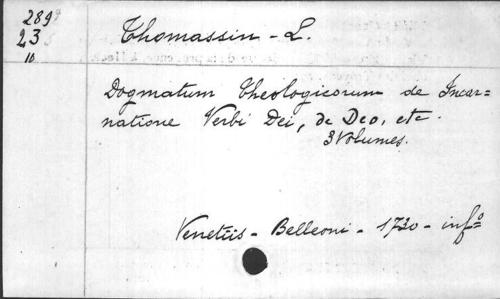 289
23
10
Thomassin - L.
Dogmatum Theologicorum de Incar=
natione Verbi Dei, de Deo, etc.
3 Volumes.
Venetiis - Belleoni - 1730 - inf°